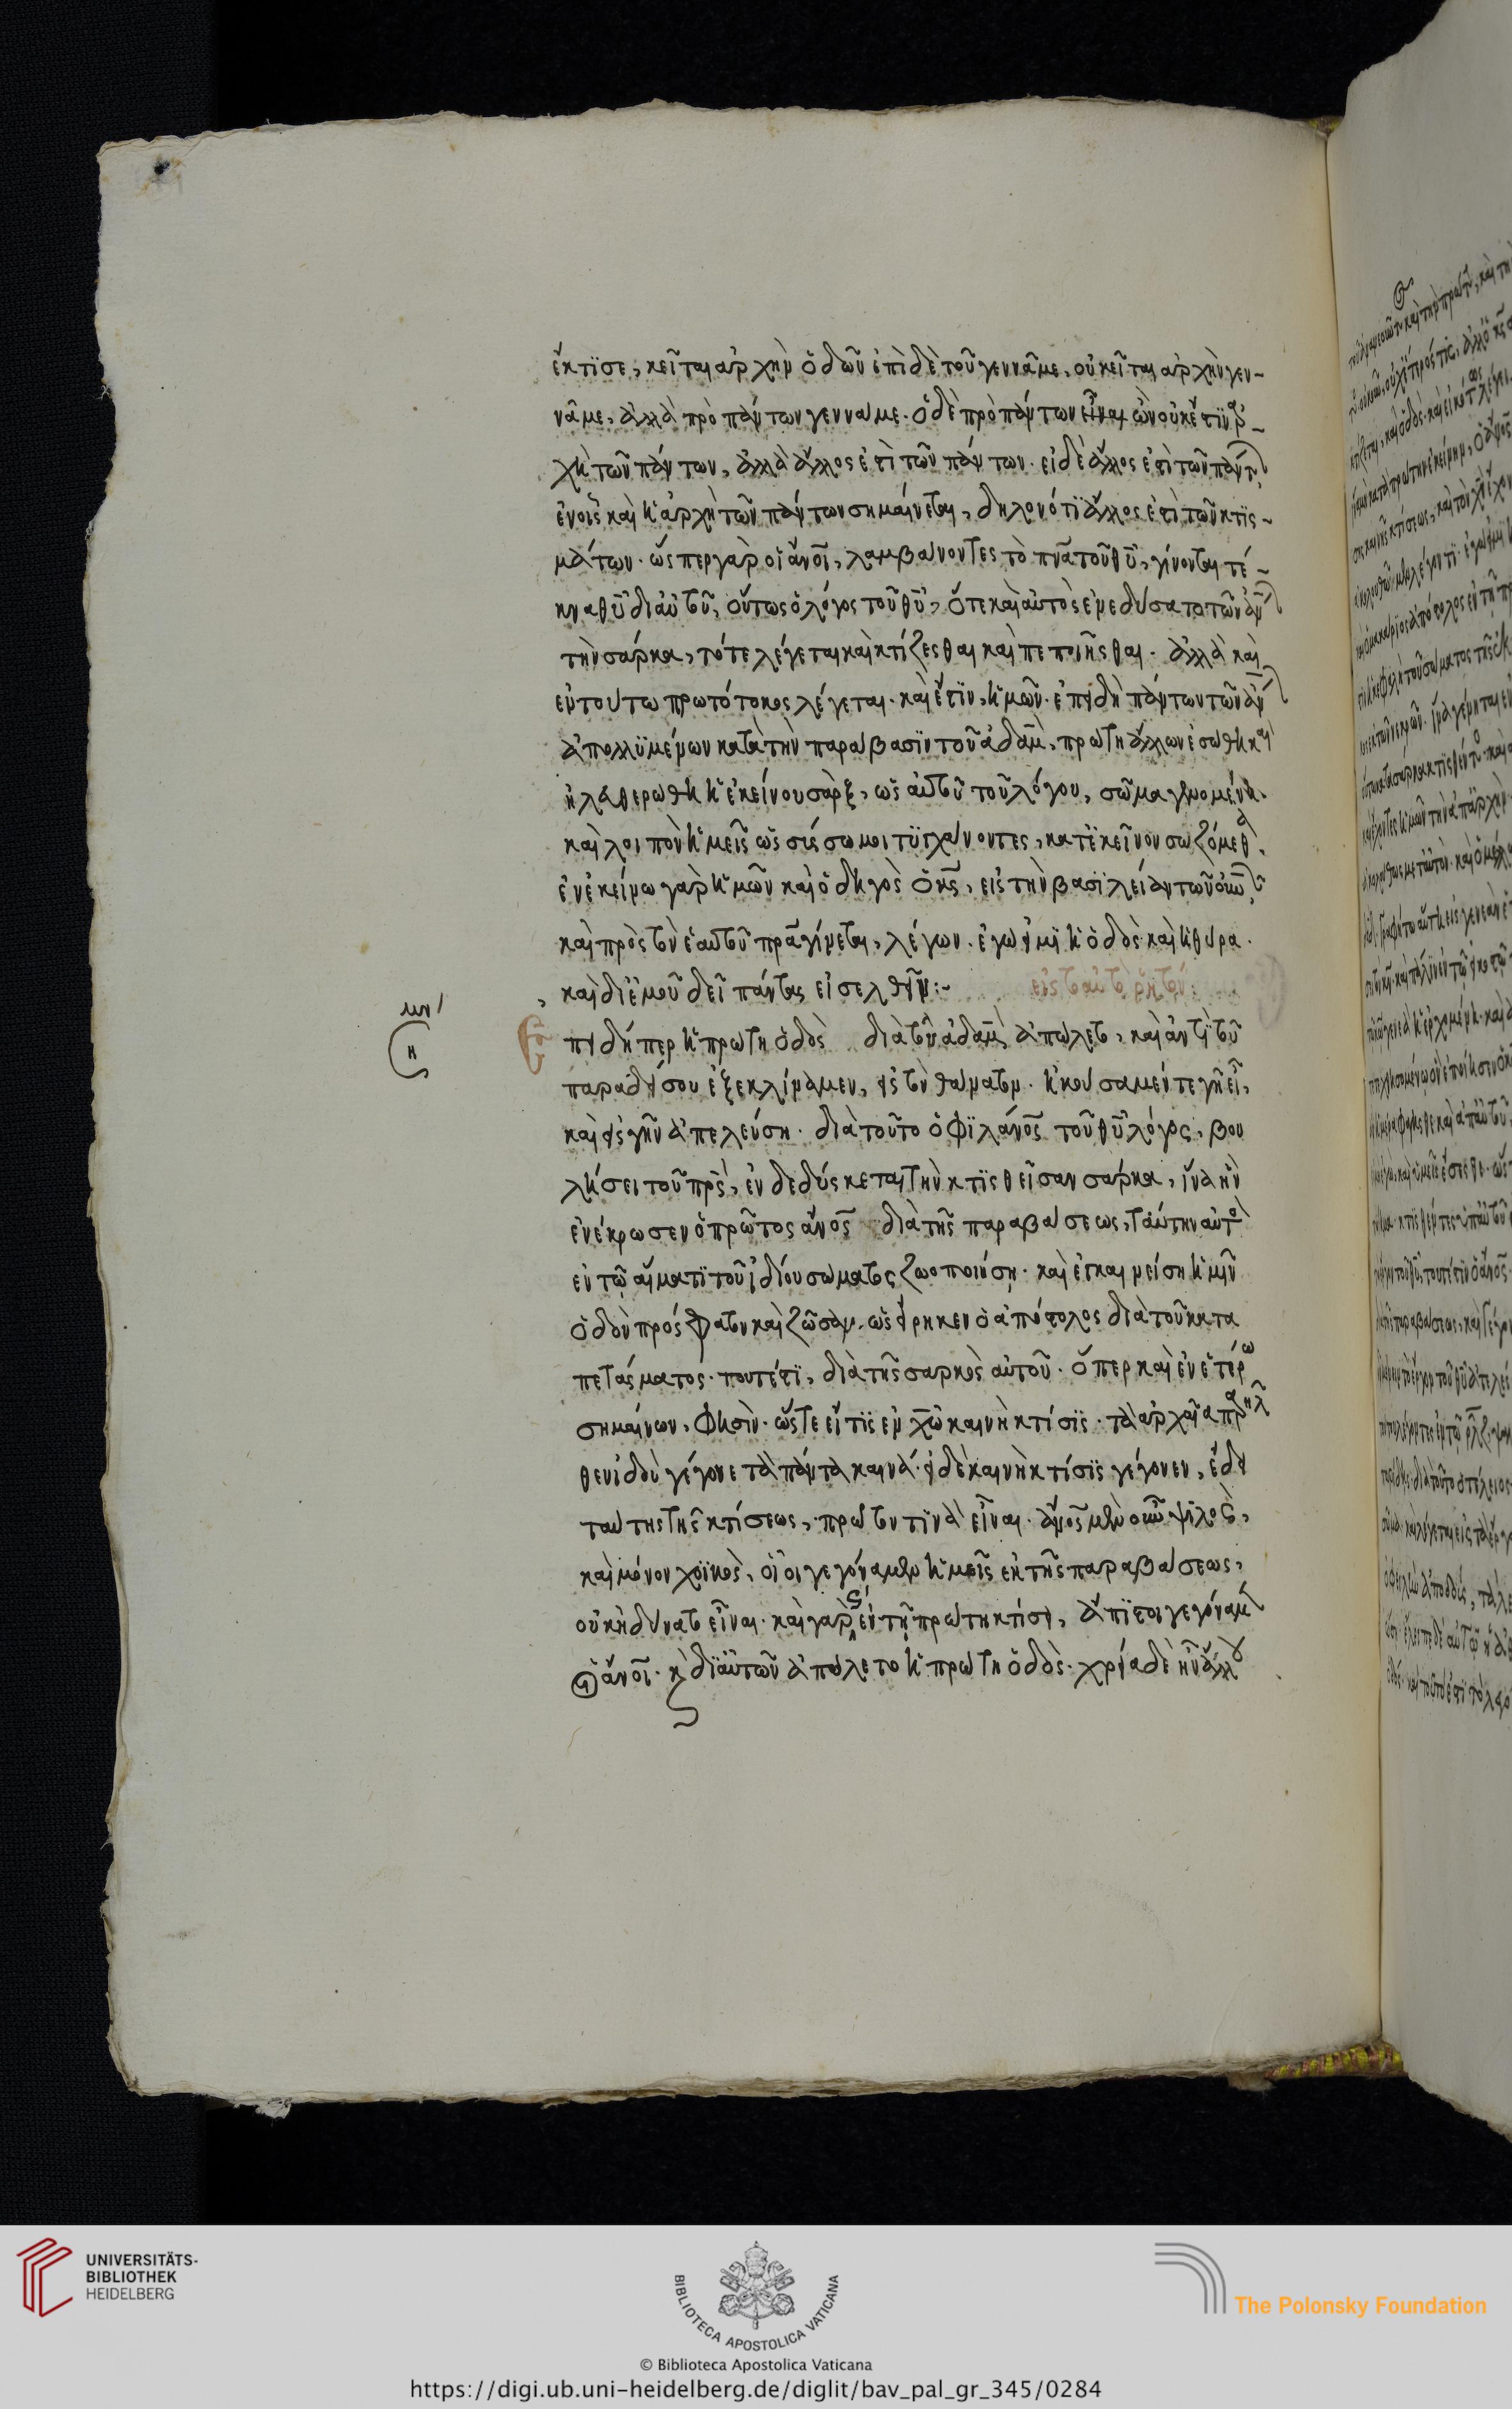 ἔκτϊσε, κεῖται ἀρχὴν ὁδῶν ἐπὶ δὲ τοῦ γεννᾶ με, οὐ κεῖται ἀρχὴν γεν-
νᾶ με, ἀλλὰ πρὸ πάντων γεννᾶ με. ὁ δὲ πρὸ πάντων εἶναι ὢν οὐκ ἔστϊν ἀρ-
χὴ τῶν πάντων, ἀλλὰ ἄλλος ἐστὶ τῶν πάντων. εἰ δὲ ἄλλος ἐστὶ τῶν πάντ
ἐν οἷς καὶ ἡ ἀρχὴ τῶν πάντων σημαίνεται, δηλονότι ἄλλος ἐστὶ τῶν κτϊς-
μάτων. ὥς περ γὰρ οἱ ἄνοι, λαμβάνοντες τὸ πνᾶ τοῦ θῦ, γίνονται τέ-
κνα θῦ δι αὐτοῦ, οὕτως ὁ λόγος τοῦ θῦ, ὅτε καὶ αὐτὸς ἐνεδύσατο τῶν ἀν
τὴν σάρκα, τότε λέγεται καὶ κτίζεσθαι καὶ πεποιῆσθαι. ἀλλὰ καὶ
ἐν τούτω πρωτότοκος λέγεται. καὶ ἔστϊν, ἡμῶν. ἐπειδὴ πάντων τῶν ἀν
ἀπολλϋμένων κατὰ τὴν παράβασϊν τοῦ ἀδὰμ, πρώτη ἄλλων ἐσώθη καὶ
ἠλευθερώθη ἡ ἐκείνου σὰρξ, ὡς αὐτοῦ τοῦ λόγου, σῶμα γενομένη.
καὶ λοιπὸν ἡμεῖς ὡς σύσσωμοι τϋγχάνοντες, κατ ἐκεῖνον σωζόμεθα.
ἐν ἐκείνω γὰρ ἡμῶν καὶ ὁδηγὸς ὁ κς, εἰς τὴν βασϊλείαν τῶν οὐνῶ
καὶ πρὸς τὸν ἑαυτοῦ πρᾶ γίνεται, λέγων. ἐγώ εἰμϊ ἡ ὁδὸς καὶ ἡ θύρα.
καὶ δι ἐμοῦ δεῖ πάντας εἰσελθεῖν:-
μη
πειδήπερ ἡ πρώτη ὁδὸς διὰ τοῦ ἀδὰμ ἀπώλετο, καὶ ἀντὶ τοῦ
παραδείσου ἐξεκλίναμεν, εἰς τὸν θάνατον. ἠκούσαμέν τε γῆ εἶ,
καὶ εἰς γῆν ἀπελεύση. διὰ τοῦτο ὁ φϊλάνος τοῦ θῦ λόγος, βου
λήσει τοῦ πρς, ἐνδεδύσκεται τὴν κτϊσθεῖσαν σάρκα, ἵνα ἣν
ἐνέκρωσεν ὁ πρῶτος ἄνος διὰ τῆς παραβάσεως, ταύτην αὐτὸς
ἐν τῷ αἵματϊ τοῦ ἰδίου σώματος ζωοποιήση. καὶ ἐγκαινείση ἡμῖν
ὁδὸν πρόσφατον καὶ ζῶσαν. ὡς εἴρηκεν ὁ ἀπόστολος διὰ τοῦ κατα
πετάσματος. τουτέστϊ, διὰ τῆς σαρκὸς αὐτοῦ. ὅπερ καὶ ἐν ἑτέρω
σημαίνων, φησὶν. ὥστε εἴ τϊς ἐν χῶ καινὴ κτίσϊς. τὰ ἀρχαῖα παρῆλ
θεν ἰδοὺ γέγονε τὰ πάντα καινά. εἰ δὲ καινὴ κτίσϊς γέγονεν, ἔδει
ταύτης τῆς κτίσεως, πρῶτον τϊνὰ εἶναι. ἄνος μὲν οὖν ψϊλὸς,
καὶ μόνον χοϊκὸς, οἷοι γεγόναμεν ἡμεῖς ἐκ τῆς παραβάσεως,
οὐκ ἠδύνατο εἶναι. καὶ γὰρ ἐν τῇ πρώτη κτίσει, ἄπϊστοι γεγόνασϊν
οἱ ἄνοι. κ δϊ αὐτῶν ἀπώλετο ἡ πρώτη ὁδὸς. χρεία δὲ ἦν ἄλλου
UNIVERSITÄTS-
BIBLIOTHEK
HEIDELBERG
BIBLIOTECA APOSTOLICA VATICANA
The Polonsky Foundation
© Biblioteca Apostolica Vaticana
https://digi.ub.uni-heidelberg.de/diglit/bav_pal_gr_345/0284